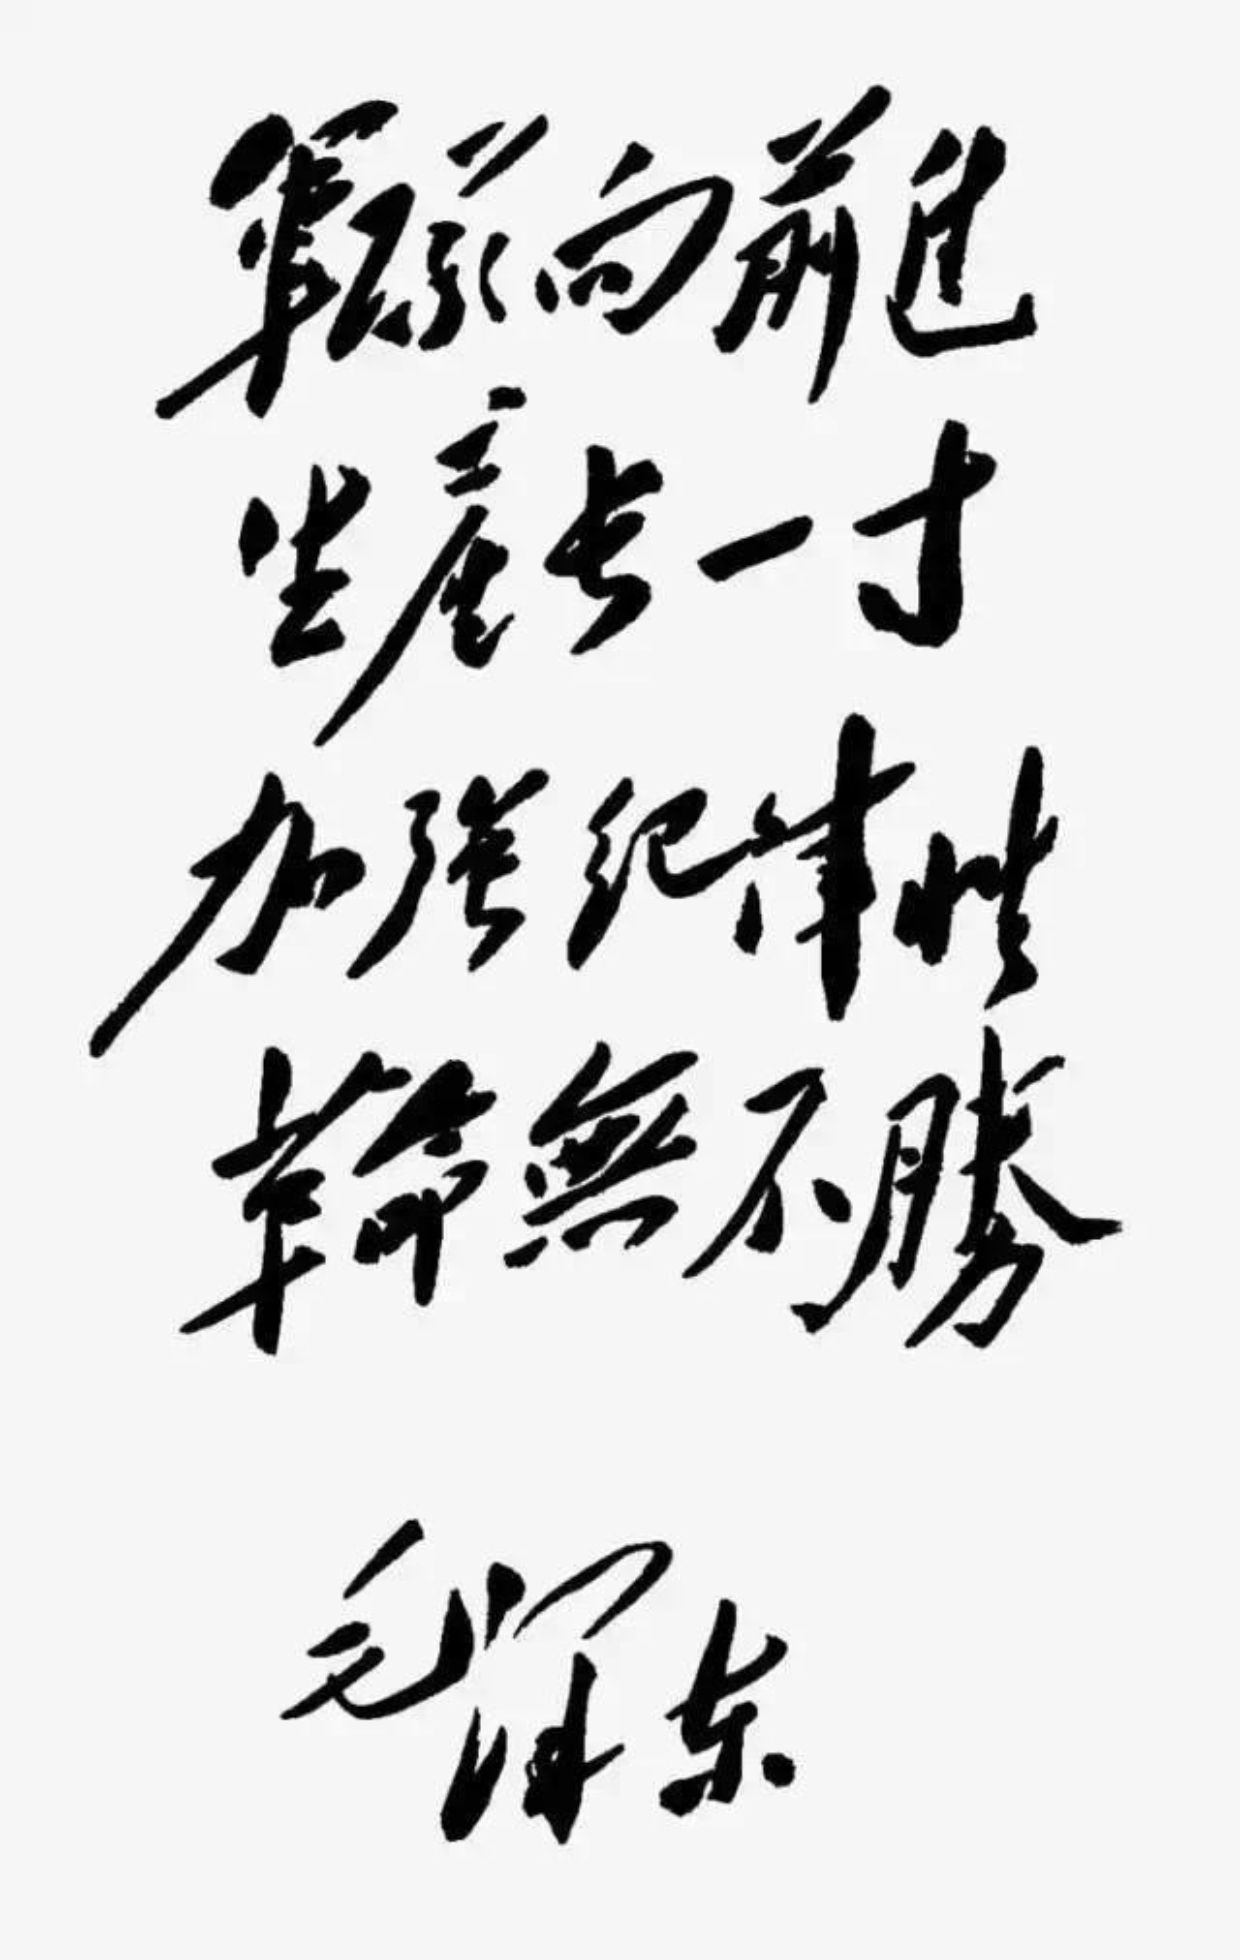 軍隊向前進
生產長一寸
加强紀律性
革命無不勝
毛澤东